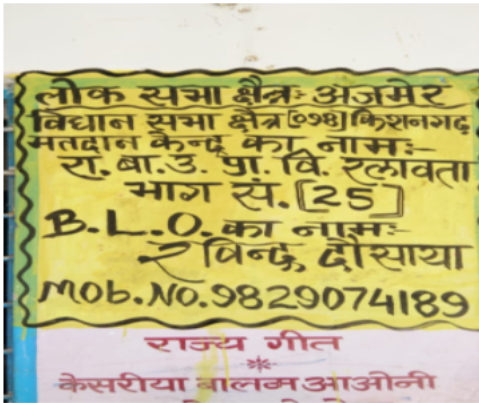 लोक सभा क्षैत्र:- अजमेर
विधान सभा क्षैत्र [074] किशनगढ़
मतदान केन्द्र का नाम:-
रा. बा. उ. प्रा. वि. रलावता
भाग सं. [25]
B.L.O. का नाम:-
रविन्द्र दौसाया
Mob.No.9829074189
राज्य गीत
केसरीया बालम आओनी